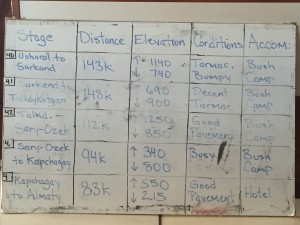 Stage Distance Elevation Conditions Accom:
40 Usharal to Sarkand 143k ↑ 1140 ↓ 740 Tarmac, Bumpy Bush Camp
41 Sarkand to Taldykorgan 148k ↑ 690 ↓ 900 Decent Tarmac Bush Camp
42 Sary-Ozek 112k ↓ 850 Good Pavement Bush Camp
Sary-Ozek to Kapchagay 94k ↑ 340 ↓ 800 Busy Bush Camp
Kapchagay to Almaty 83k ↑ 550 ↓ 215 Good Pavement Hotel